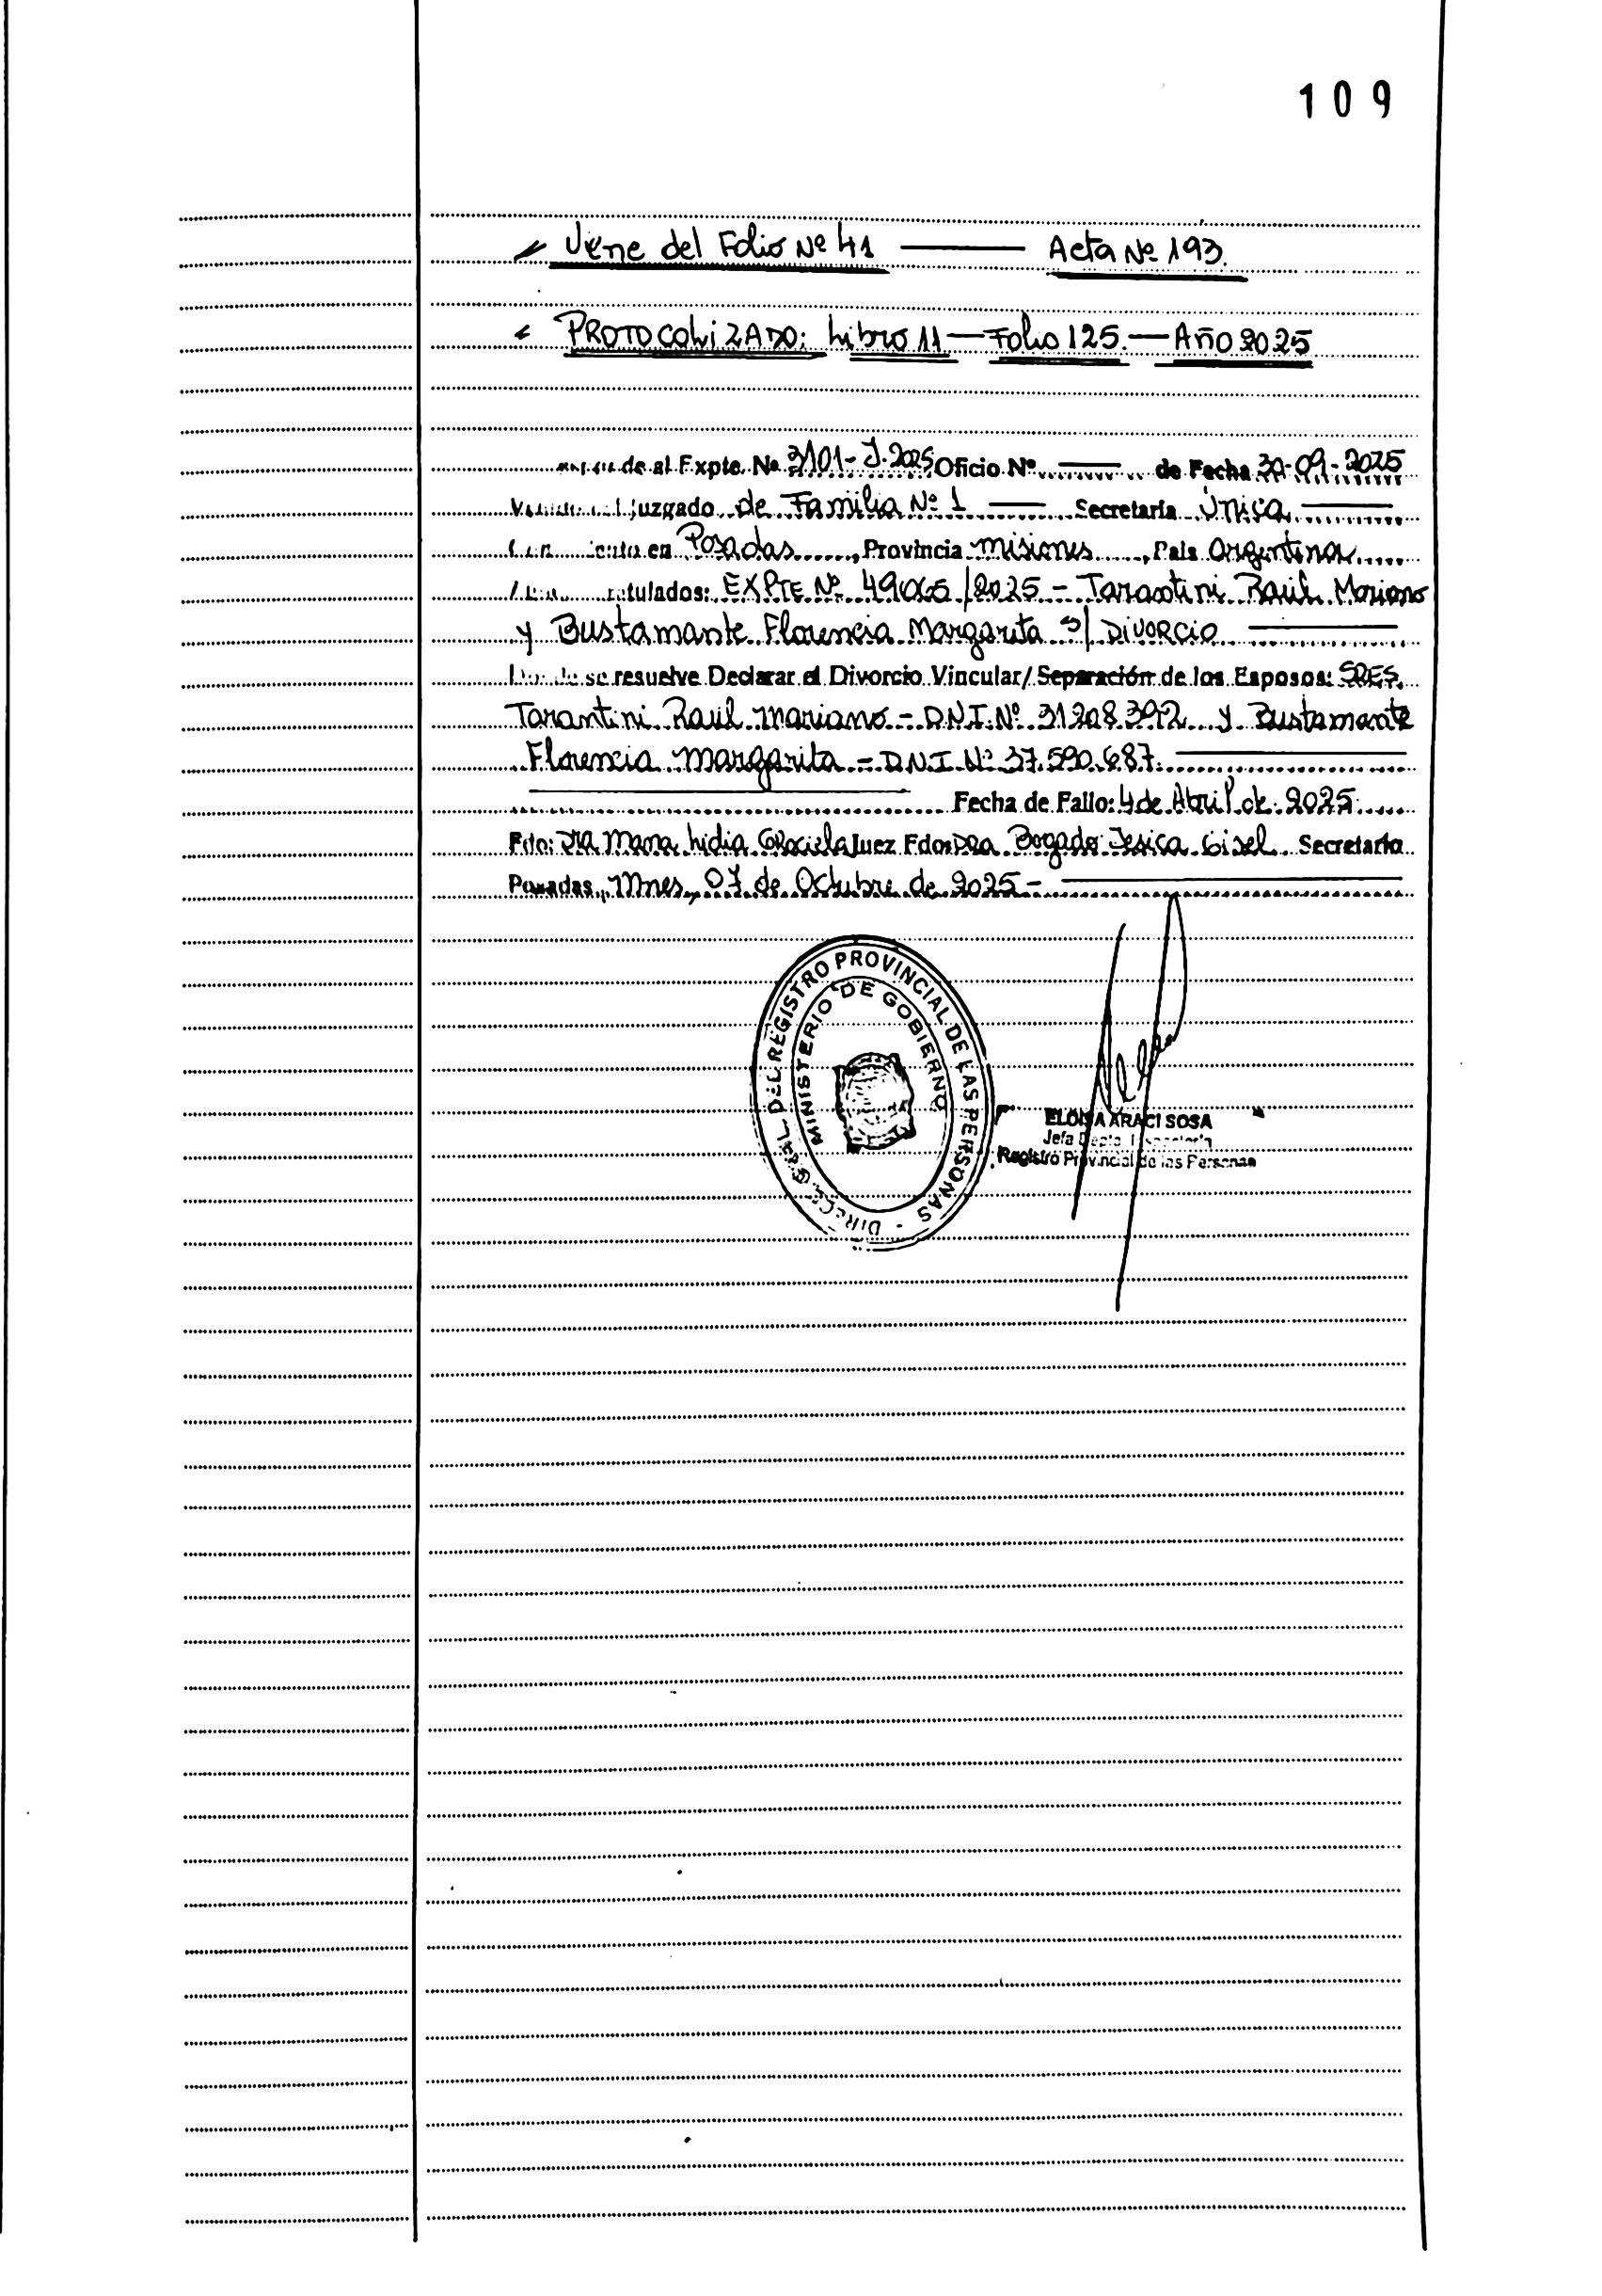 109
Viene del Folio Nº 41 —— Acta Nº 193.
PROTOCOLIZADO: Libro 11 — Folio 125. — Año 2025
de al Expte. Nº 3101-J-2025 Oficio Nº —— de Fecha 30-09-2025
Juzgado de Familia Nº 1 —— Secretaría Única ——
en Posadas, Provincia Misiones, País Argentina
EXPTE Nº 49065/2025 - Tarantini Raúl Mariano
y Bustamante Florencia Margarita S/ DIVORCIO ——
se resuelve Declarar el Divorcio Vincular/ Separación de los Esposos: SRES.
Tarantini Raúl Mariano - D.N.I. Nº 31.208.392 y Bustamante
Florencia Margarita - D.N.I. Nº 37.590.687. ——
Fecha de Fallo: 4 de Abril de 2025
Fdo: Dra Lidia Graciela Juez Fdo: Dra Bogado Jesica Gisel Secretaria
Posadas, Mnes, 07 de Octubre de 2025 - ——
DIRECC. GRAL. DEL REGISTRO PROVINCIAL DE LAS PERSONAS -
MINISTERIO DE GOBIERNO
ELOISA ARACI SOSA
Jefa Depto.
Registro Provincial de las Personas